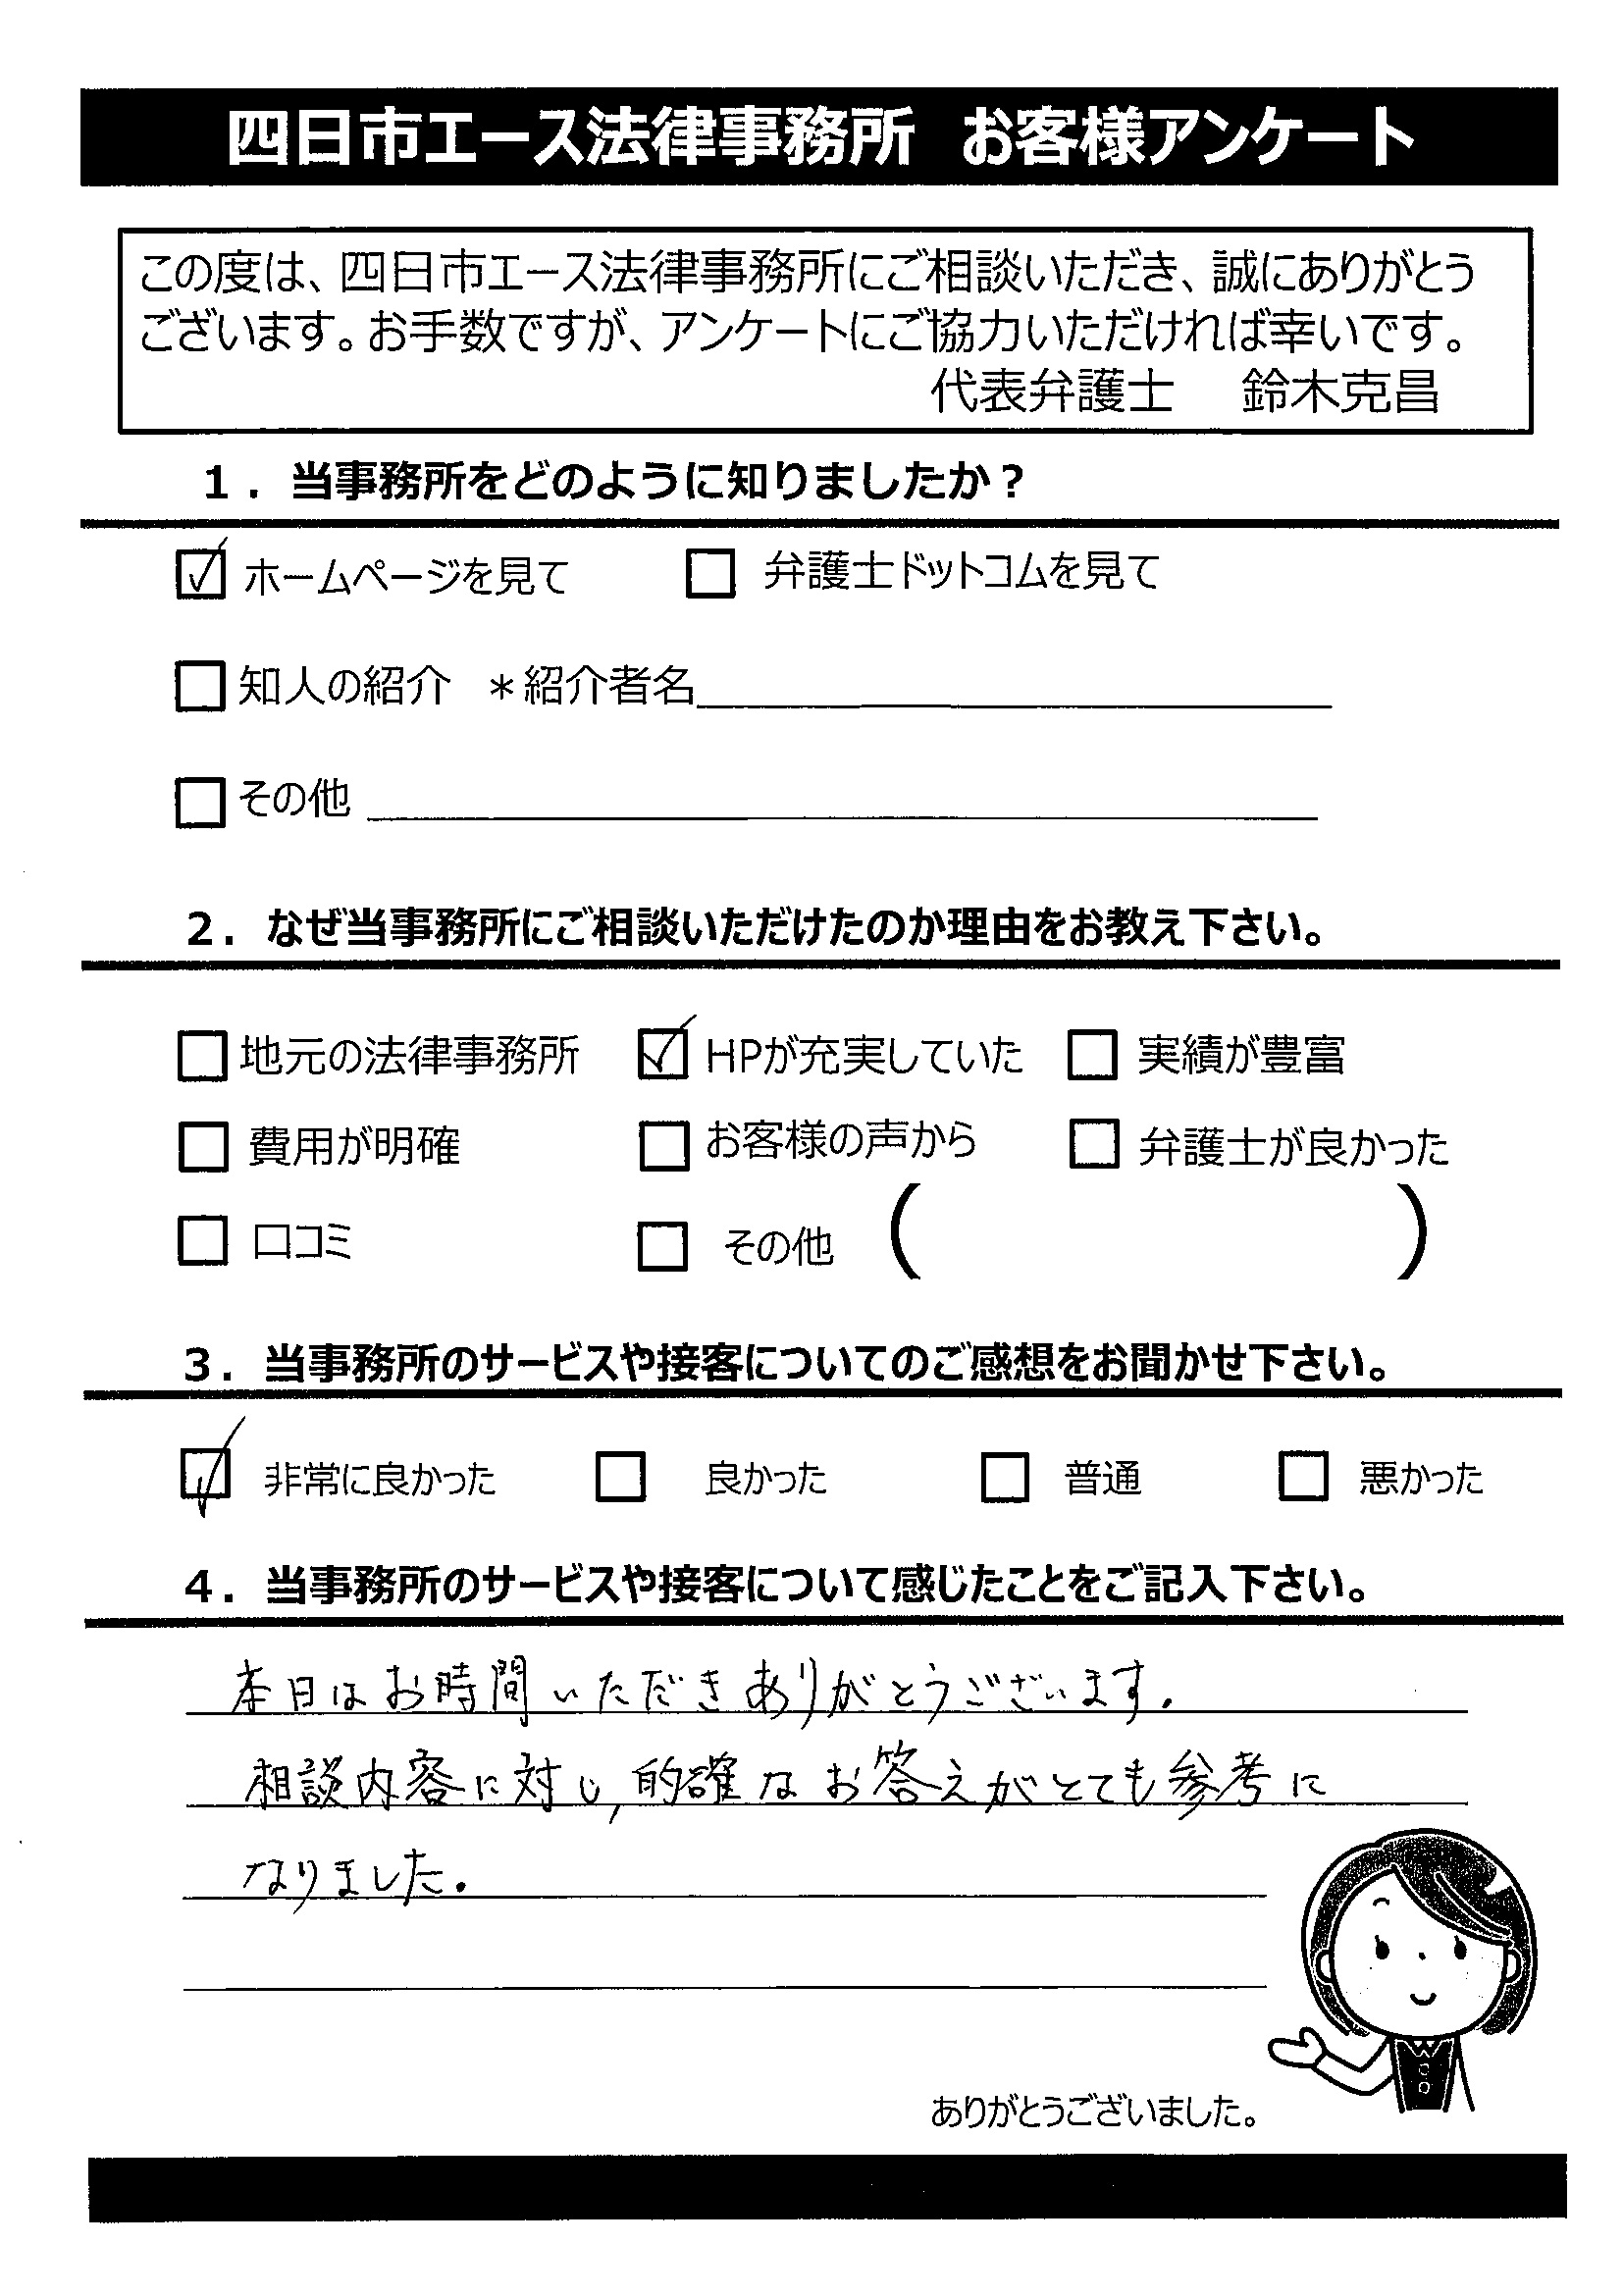 四日市エース法律事務所　お客様アンケート
この度は、四日市エース法律事務所にご相談いただき、誠にありがとう
ございます。お手数ですが、アンケートにご協力いただければ幸いです。
代表弁護士　鈴木克昌
１．当事務所をどのように知りましたか？
☑ ホームページを見て　□ 弁護士ドットコムを見て
□ 知人の紹介　＊紹介者名
□ その他
２．なぜ当事務所にご相談いただけたのか理由をお教え下さい。
□ 地元の法律事務所　☑ HPが充実していた　□ 実績が豊富
□ 費用が明確　□ お客様の声から　□ 弁護士が良かった
□ 口コミ　□ その他 （　　　）
３．当事務所のサービスや接客についてのご感想をお聞かせ下さい。
☑ 非常に良かった　□ 良かった　□ 普通　□ 悪かった
４．当事務所のサービスや接客について感じたことをご記入下さい。
本日はお時間いただきありがとうございます。
相談内容に対し,的確なお答えがとても参考に
なりました。
ありがとうございました。